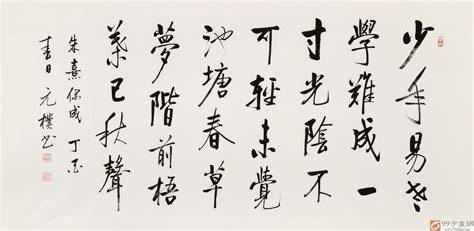 少年易老
學難成一
寸光陰不
可輕未覺
池塘春草
夢階前梧
葉已秋聲
朱熹偶成 丁酉
春日 元樸书
99字畫網